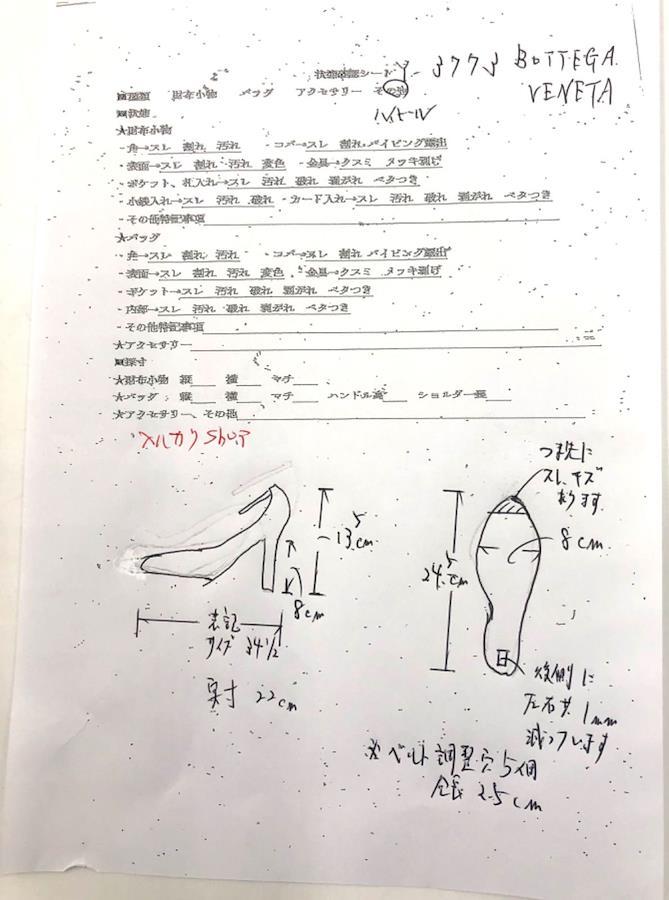 状態確認シート 3773 BOTTEGA VENETA
■種類 財布小物 バッグ アクセサリー その他
ハイヒール
■状態
★財布小物
・角→スレ 割れ 汚れ ・コバ→スレ 割れ パイピング露出
・表面→スレ 割れ 汚れ 変色 ・金具→クスミ メッキ剥げ
・ポケット、札入れ→スレ 汚れ 破れ 剥がれ ベタつき
・小銭入れ→スレ 汚れ 破れ ・カード入れ→スレ 汚れ 破れ 剥がれ ベタつき
・その他特記事項
★バッグ
・角→スレ 割れ 汚れ ・コバ→スレ 割れ パイピング露出
・表面→スレ 割れ 汚れ 変色 ・金具→クスミ メッキ剥げ
・ポケット→スレ 汚れ 破れ 剥がれ ベタつき
・内部→スレ 汚れ 破れ 剥がれ ベタつき
・その他特記事項
★アクセサリー
■採寸
★財布小物 縦 横 マチ
★バッグ 縦 横 マチ ハンドル高 ショルダー長
★アクセサリー、その他
メルカリShop
つま先に
スレ、キズ
あります
13.5cm
8cm
24.5cm
8cm
表記
サイズ 34 1/2
実寸 22cm
後側に
左右共 1mm
減っています
※ベルト調整穴 5個
全長 25cm